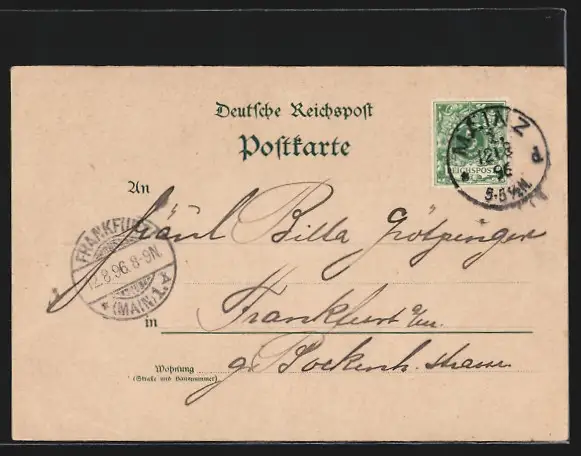 Deutsche Reichspost
Postkarte
MAINZ
12 8
96
5-6 N.
REICHSPOST
An
Fräul Billa Grötzinger
FRANKFURT
12.8.96.8-9N.
(MAIN) 1.
in Frankfurt a/m.
gr. Bockenh. strasse
Wohnung
(Straße und Hausnummer)